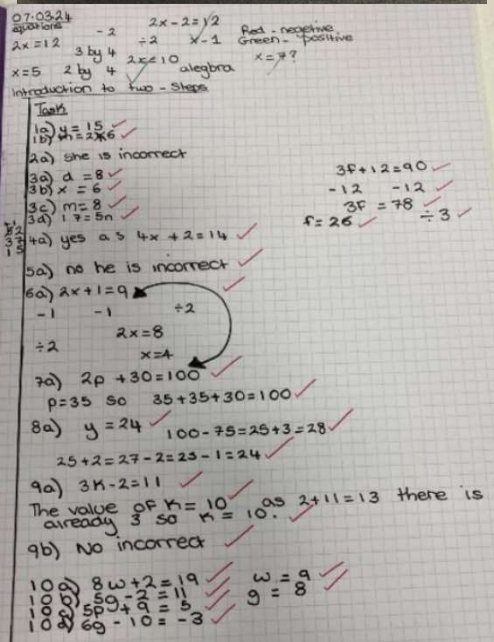 07.03.24
equations
- 2
2x - 2 = 12
2x = 12
÷2
x - 1
Red - negetive
Green - positive
3 by 4
2x = 10
x = 7?
x = 5
2 by 4
alegbra
Introduction to two - steps
Task
1a) y = 15
2a) she is incorrect
3a) d = 8
3b) x = 6
3c) m = 8
3d) 17 = 5n
3f + 12 = 90
-12 -12
3f = 78
÷3
f = 26
4a) yes as 4x + 2 = 14
5a) no he is incorrect
6a) 2x + 1 = 9
-1 -1
÷2
2x = 8
÷2
x = 4
7a) 2p + 30 = 100
p = 35 so 35 + 35 + 30 = 100
8a) y = 24
100 - 75 = 25 + 3 = 28
25 + 2 = 27 - 2 = 25 - 1 = 24
9a) 3k - 2 = 11
The value of k = 10 as 2 + 11 = 13 there is
already 3 so k = 10.
9b) No incorrect
8w + 2 = 19
w = 9
5g - 2 = 11
g = 8
5p + 9 = 5
6g - 10 = -3